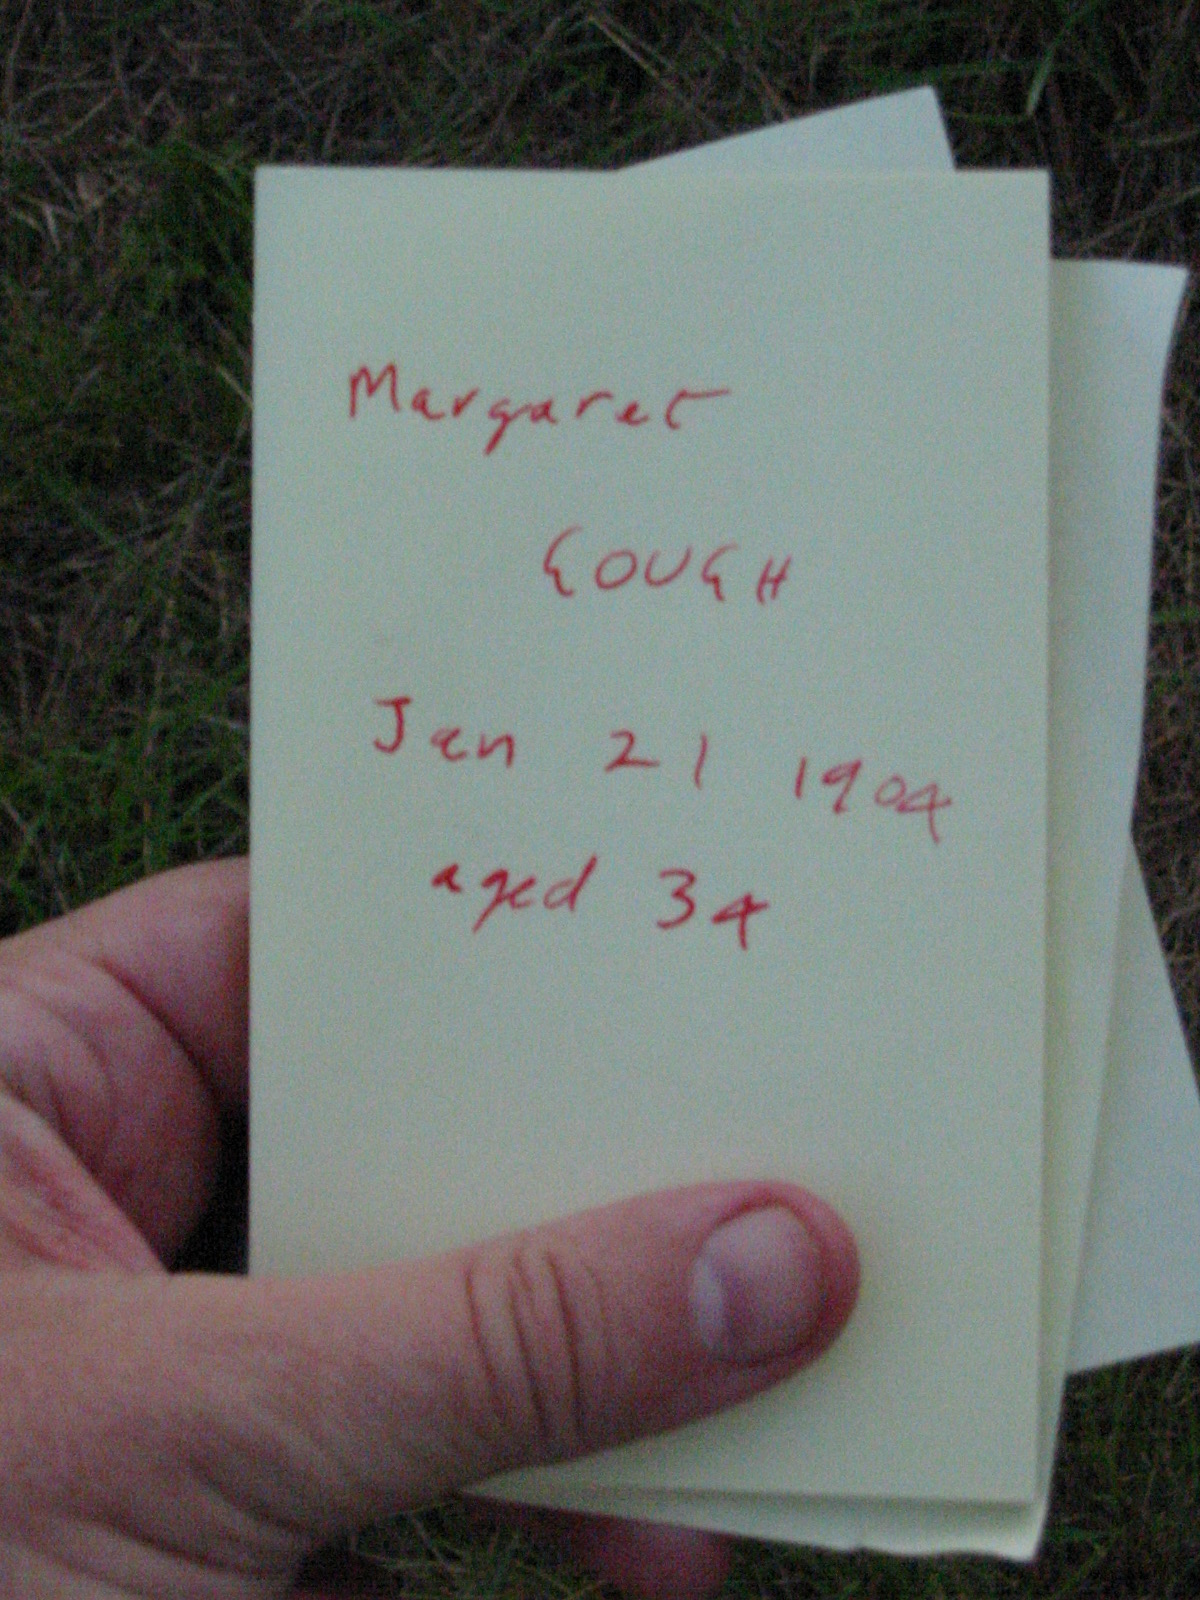 Margaret
GOUGH
Jan 21 1904
aged 34